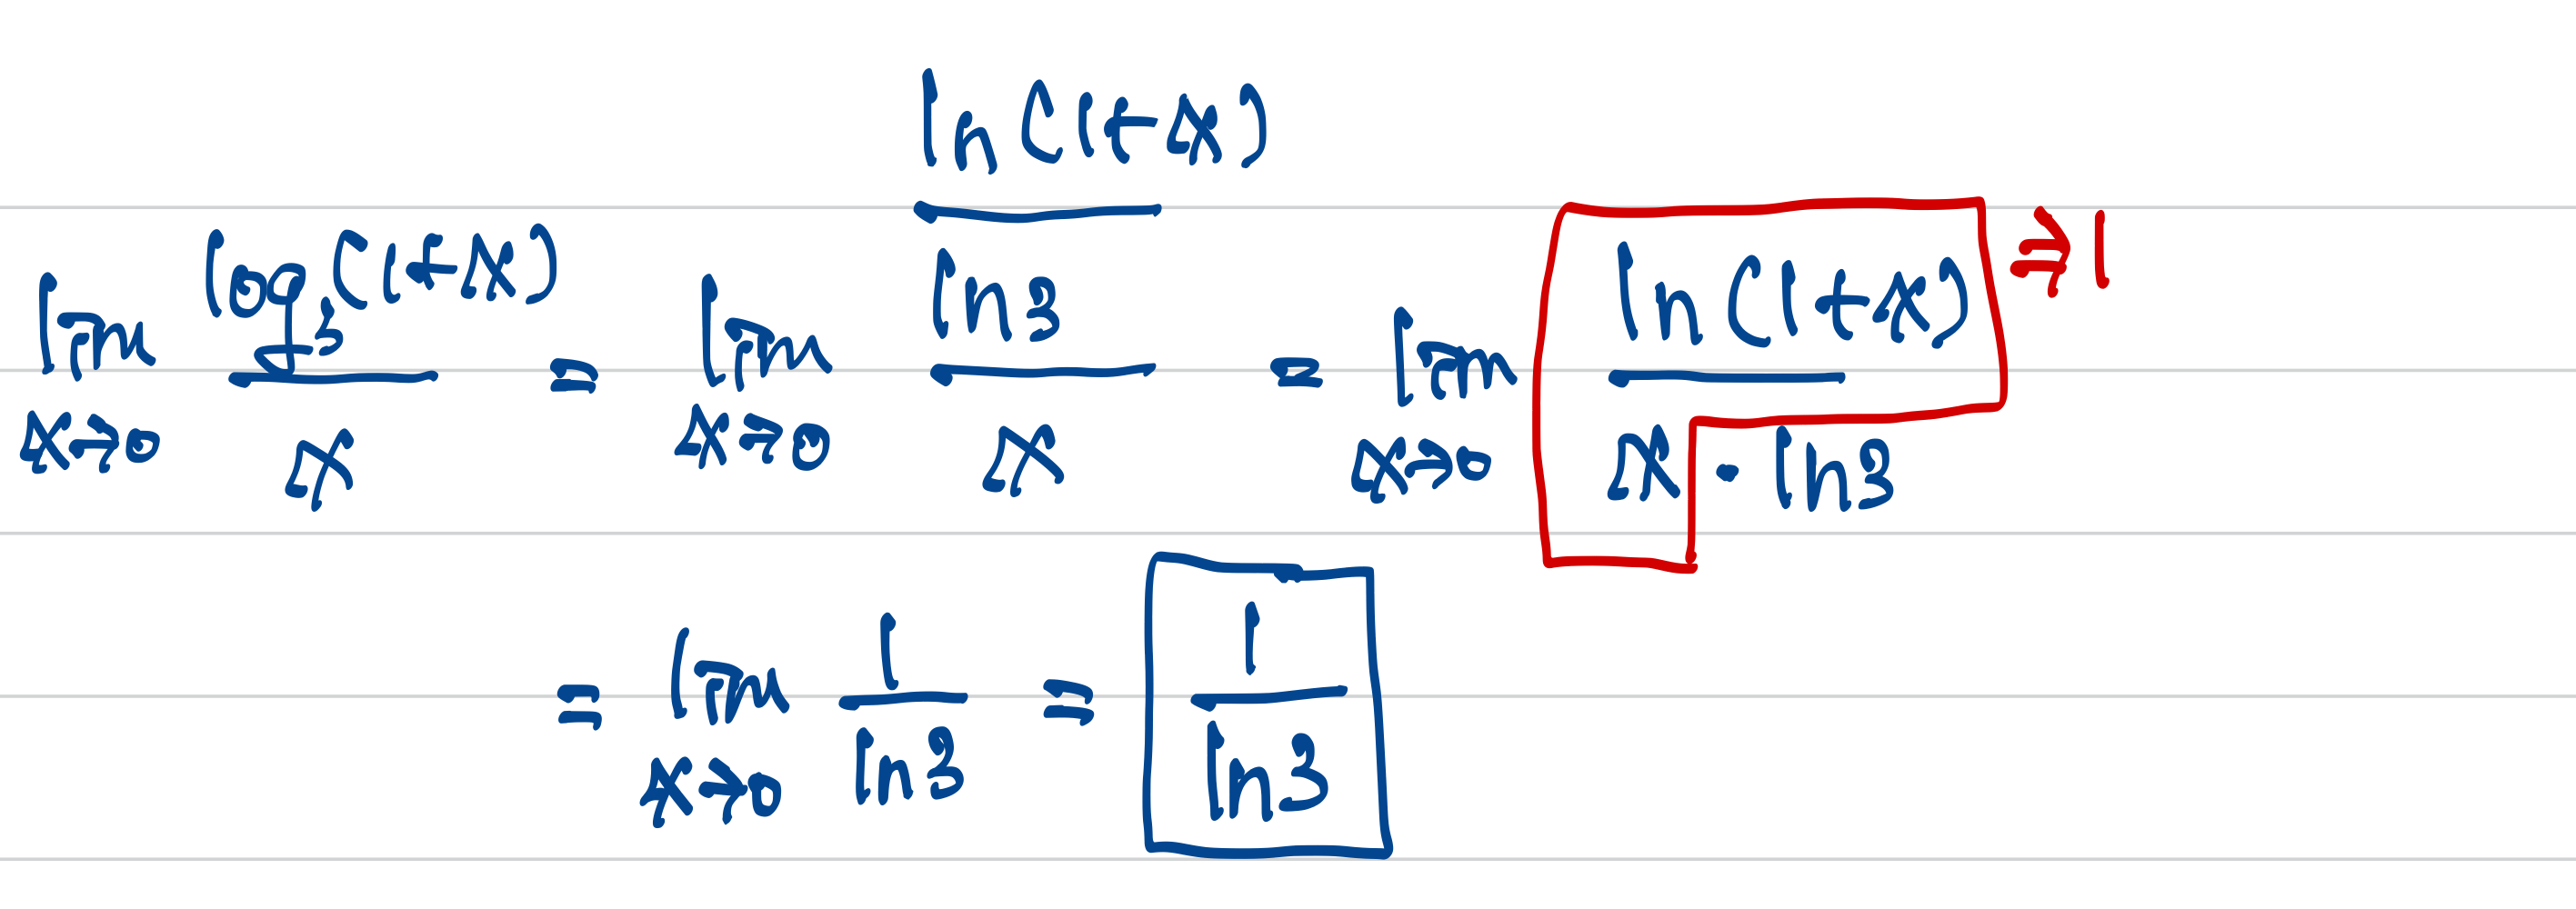 lim x→0 log₃(1+x) / x = lim x→0 (ln(1+x) / ln3) / x = lim x→0 ln(1+x) / (x · ln3) ⇒ 1
= lim x→0 1 / ln3 = 1 / ln3